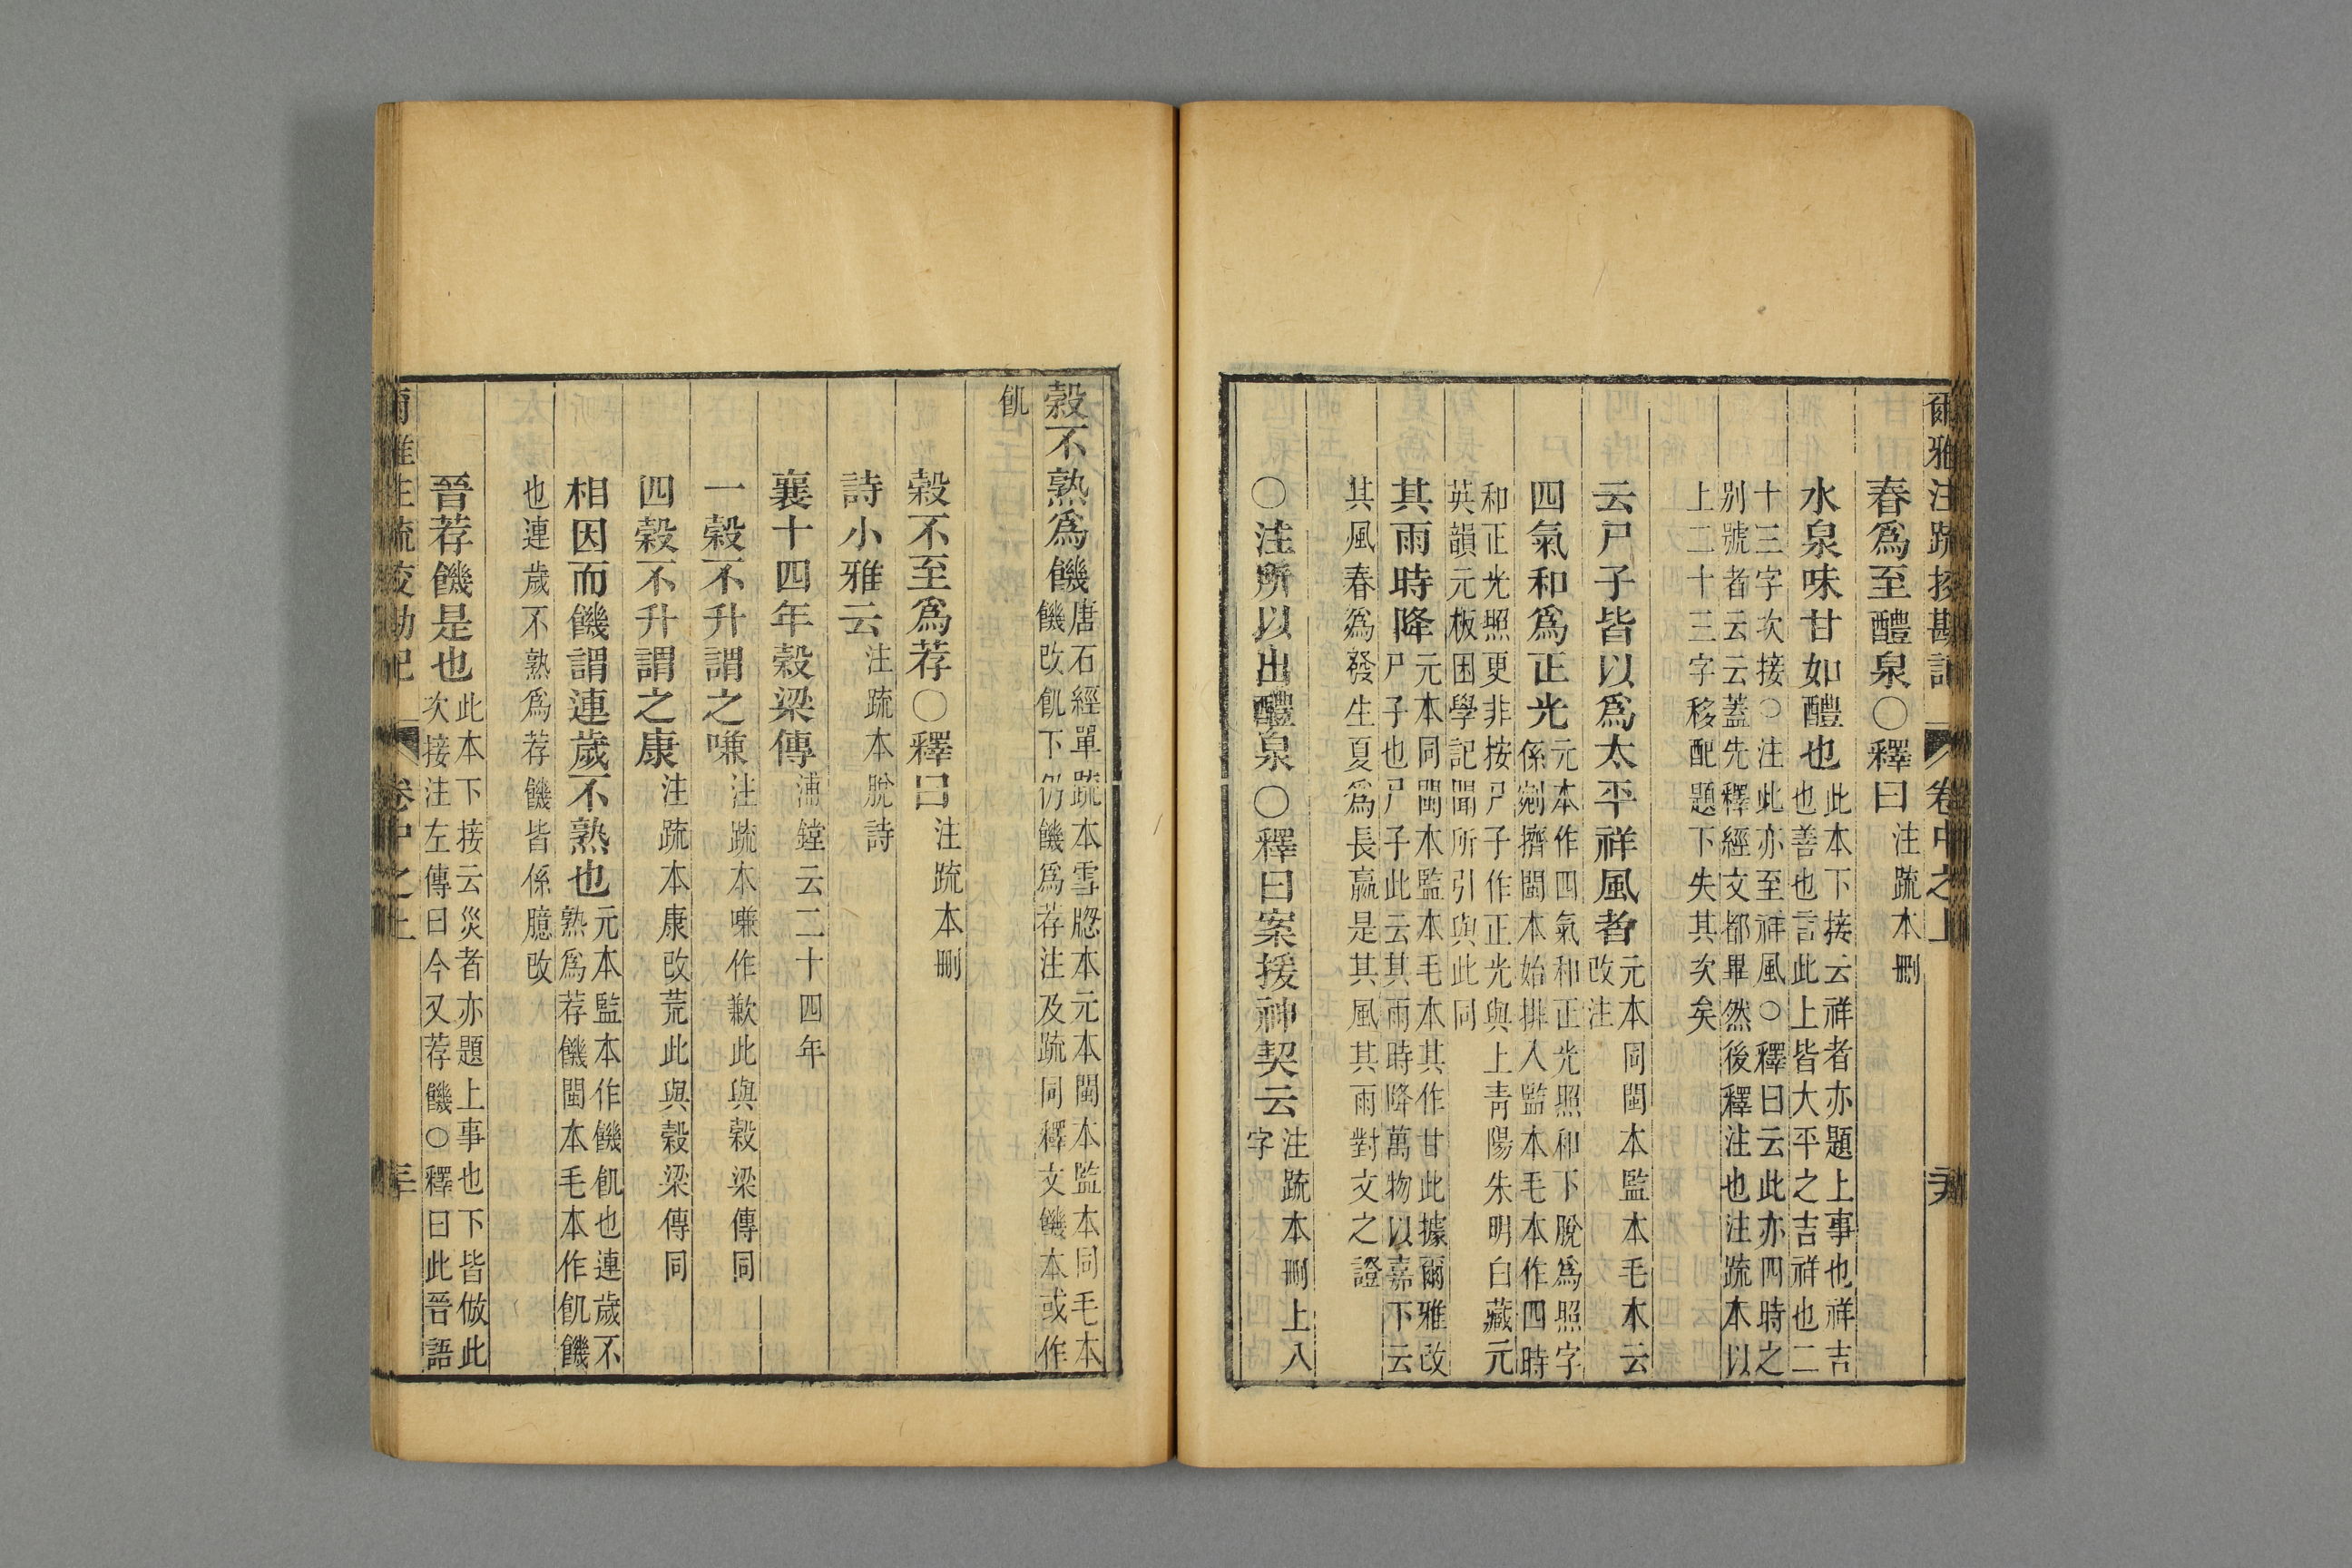 爾雅注疏挍勘記 卷中之上
春爲至醴泉○釋曰注疏本刪
水泉味甘如醴也此本下接云祥者亦題上事也祥吉
也善也言此上皆大平之吉祥也二
十三字次接○注此亦至祥風○釋曰云此亦四時之
别號者云云蓋先釋經文都畢然後釋注也注疏本以
上二十三字移配題下失其次矣
云尸子皆以爲太平祥風者元本同閩本監本毛本云
改注
四氣和爲正光元本作四氣和正光照和下脫爲照字
係剜擠閩本始排入監本毛本作四時
和正光照更非按尸子作正光與上靑陽朱明白藏元
英韻元板困學記聞所引與此同
其雨時降元本同閩本監本毛本其作甘此據爾雅改
尸子也尸子此云其雨時降萬物以嘉下云
其風春爲發生夏爲長嬴是其風其雨對文之證
○注所以出醴泉○釋曰案援神契云注疏本刪上八
字
穀不熟爲饑唐石經單疏本雪牕本元本閩本監本同毛本
饑改飢下仍饑爲荐注及疏同釋文饑本或作
飢
穀不至爲荐○釋曰注疏本刪
詩小雅云注疏本脫詩
襄十四年穀梁傳浦鏜云二十四年
一穀不升謂之嗛注疏本嗛作歉此與穀梁傳同
四穀不升謂之康注疏本康改荒此與穀梁傳同
相因而饑謂連歲不熟也元本監本作饑飢也連歲不
熟爲荐饑閩本毛本作飢饑
也連歲不熟爲荐饑皆係臆改
晉荐饑是也此本下接云災者亦題上事也下皆倣此
次接注左傳曰今又荐饑○釋曰此晉語
爾雅注疏挍勘記 卷中之上